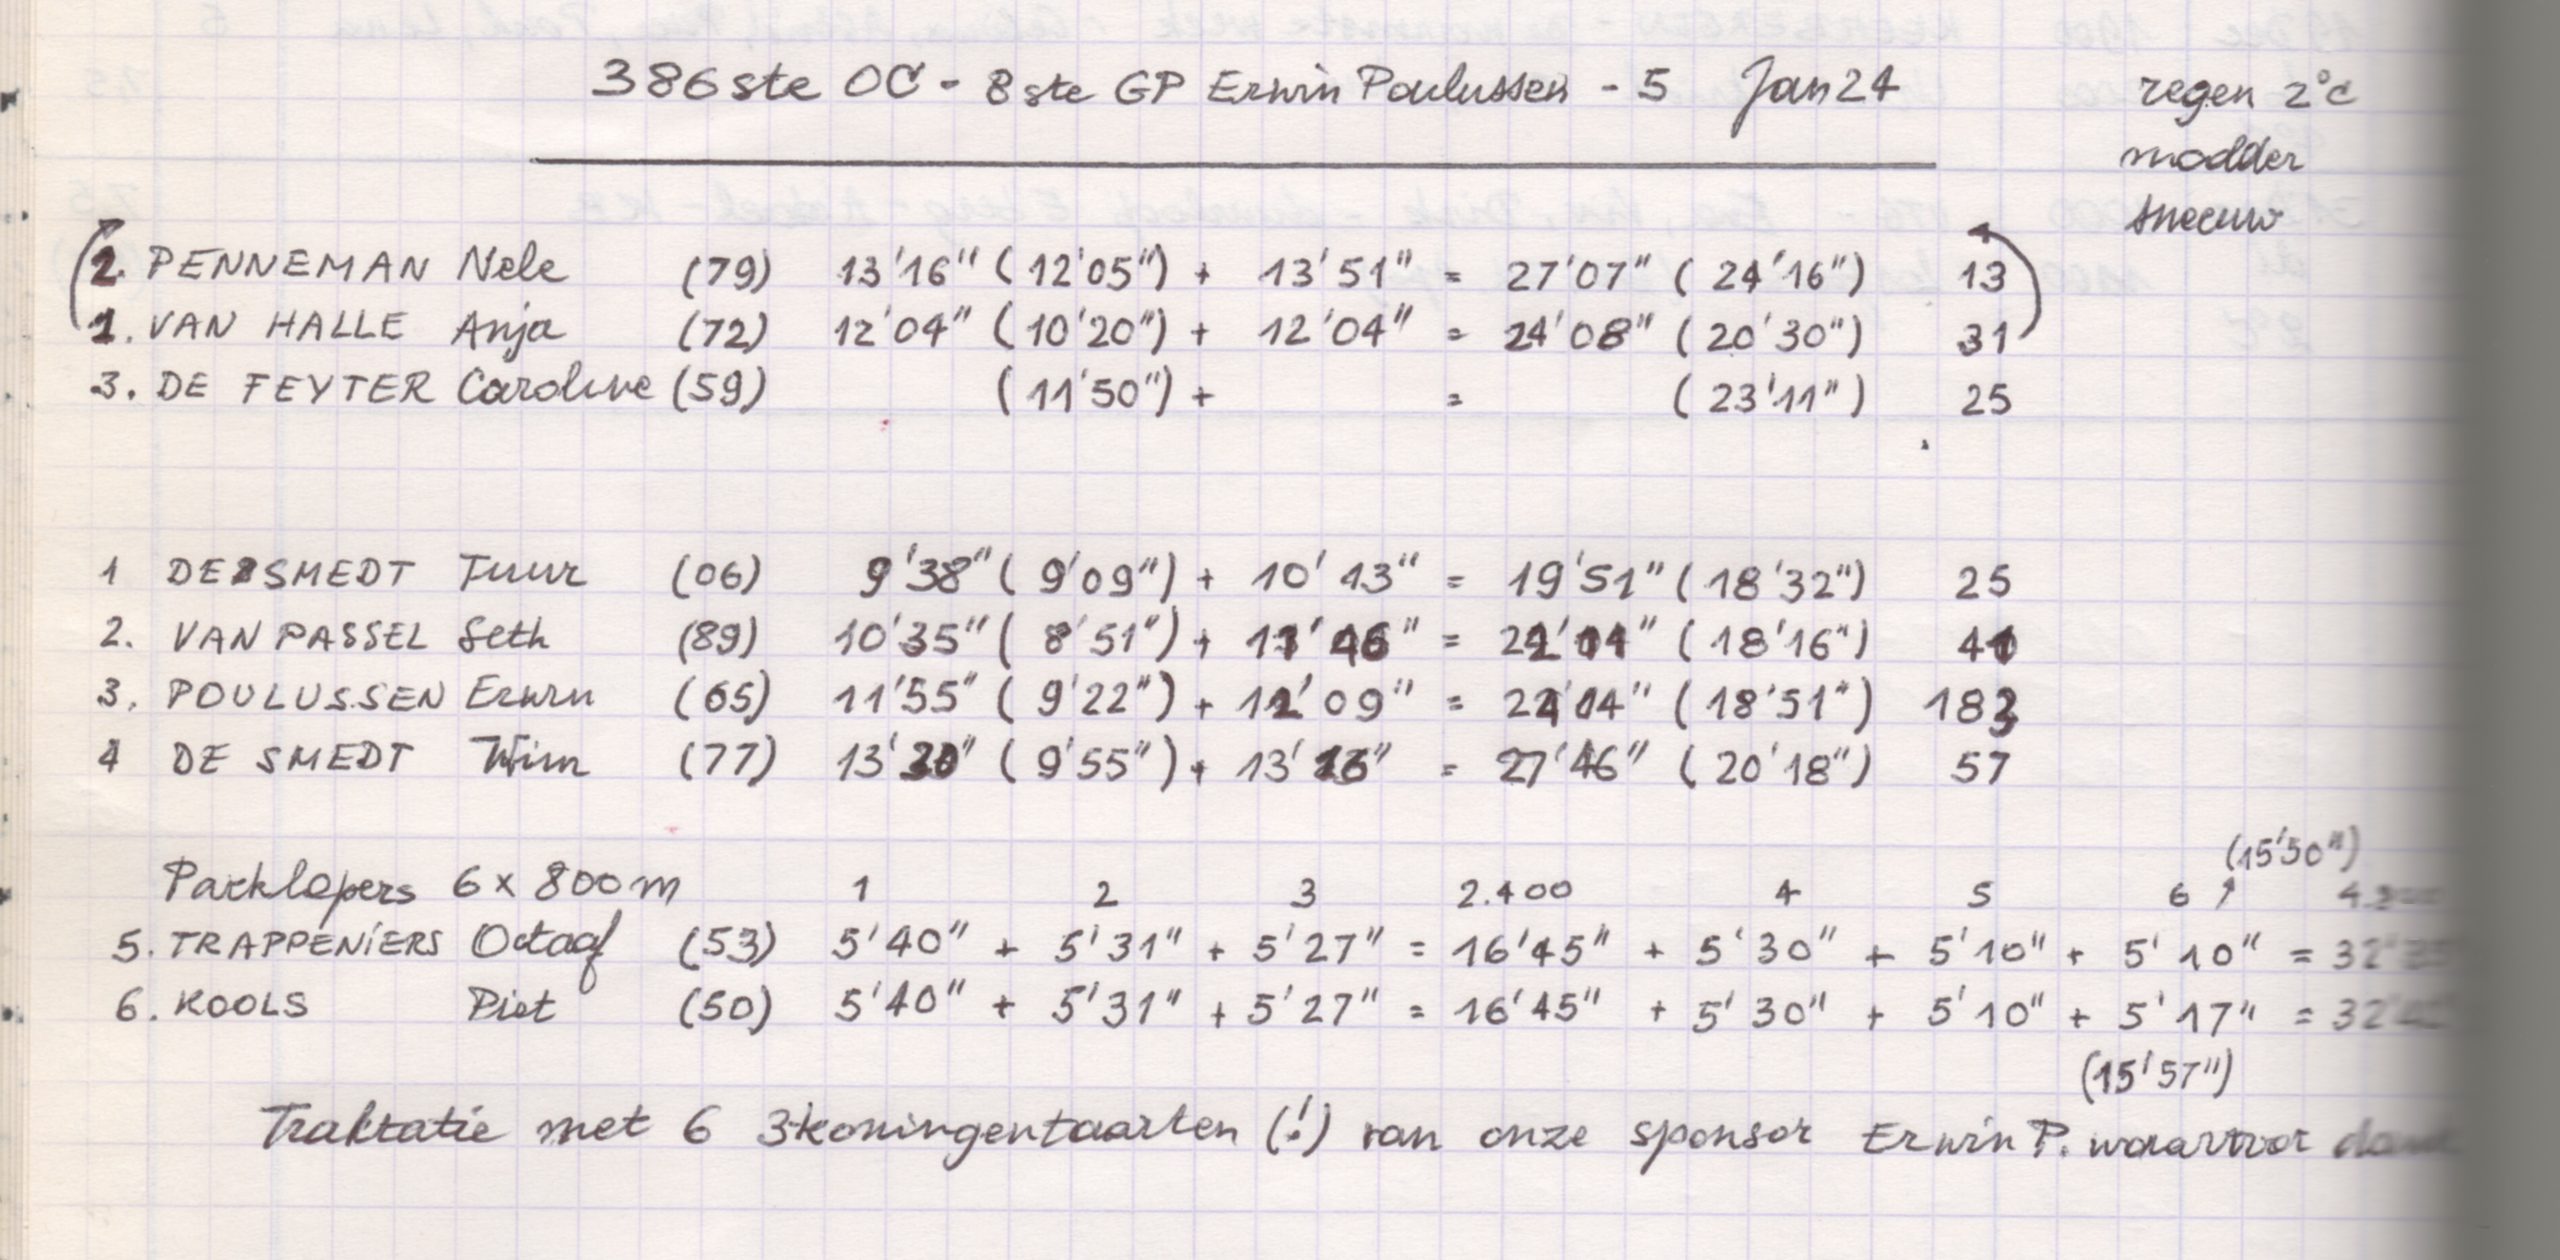 386ste OC - 8ste GP Erwin Poulussen - 5 Jan 24
regen 2°C
modder
sneeuw
2. PENNEMAN Nele (79) 13'16" (12'05") + 13'51" = 27'07" (24'16") 13
1. VAN HALLE Anja (72) 12'04" (10'20") + 12'04" = 24'08" (20'30") 31
3. DE FEYTER Caroline (59) (11'50") + = (23'11") 25
1 DE SMEDT Tuur (06) 9'38" (9'09") + 10'13" = 19'51" (18'32") 25
2. VAN PASSEL Seth (89) 10'35" (8'51") + = (18'16") 41
3. POULUSSEN Erwin (65) 11'55" (9'22") + 12'09" = (18'51") 183
4 DE SMEDT Wim (77) (9'55") + = 27'46" (20'18") 57
(15'50")
Parklopers 6 x 800m 1 2 3 2.400 4 5 6
5. TRAPPENIERS Octaaf (53) 5'40" + 5'31" + 5'27" = 16'45" + 5'30" + 5'10" + 5'10" = 32'35
6. KOOLS Piet (50) 5'40" + 5'31" + 5'27" = 16'45" + 5'30" + 5'10" + 5'17" = 32'42
(15'57")
Traktatie met 6 3koningentaarten (!) van onze sponsor Erwin P. waarvoor dank